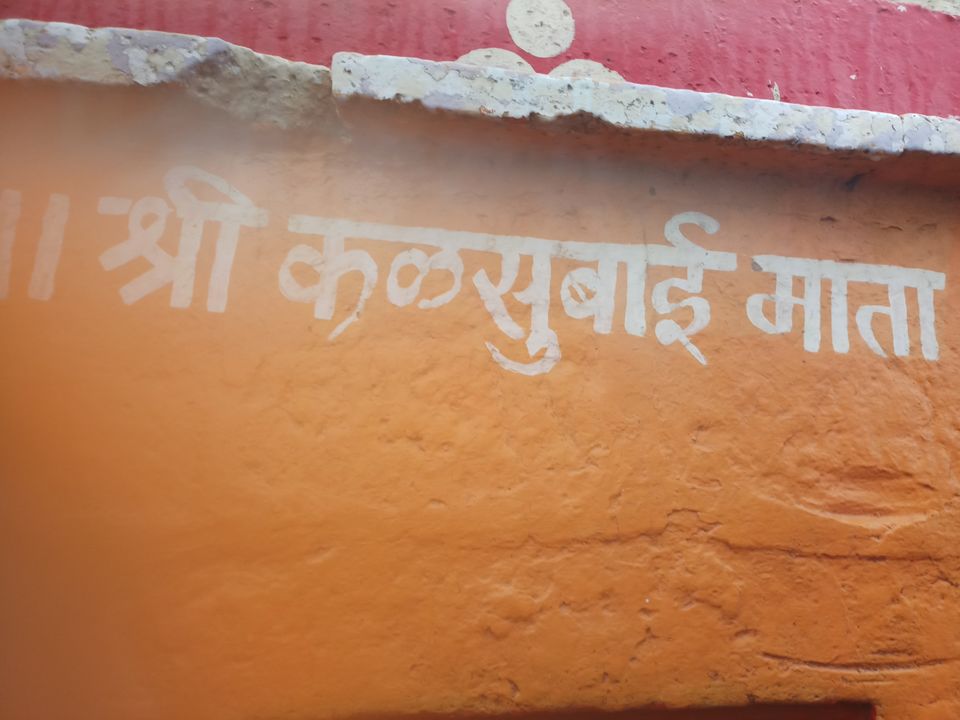 ॥ श्री कळसुबाई माता